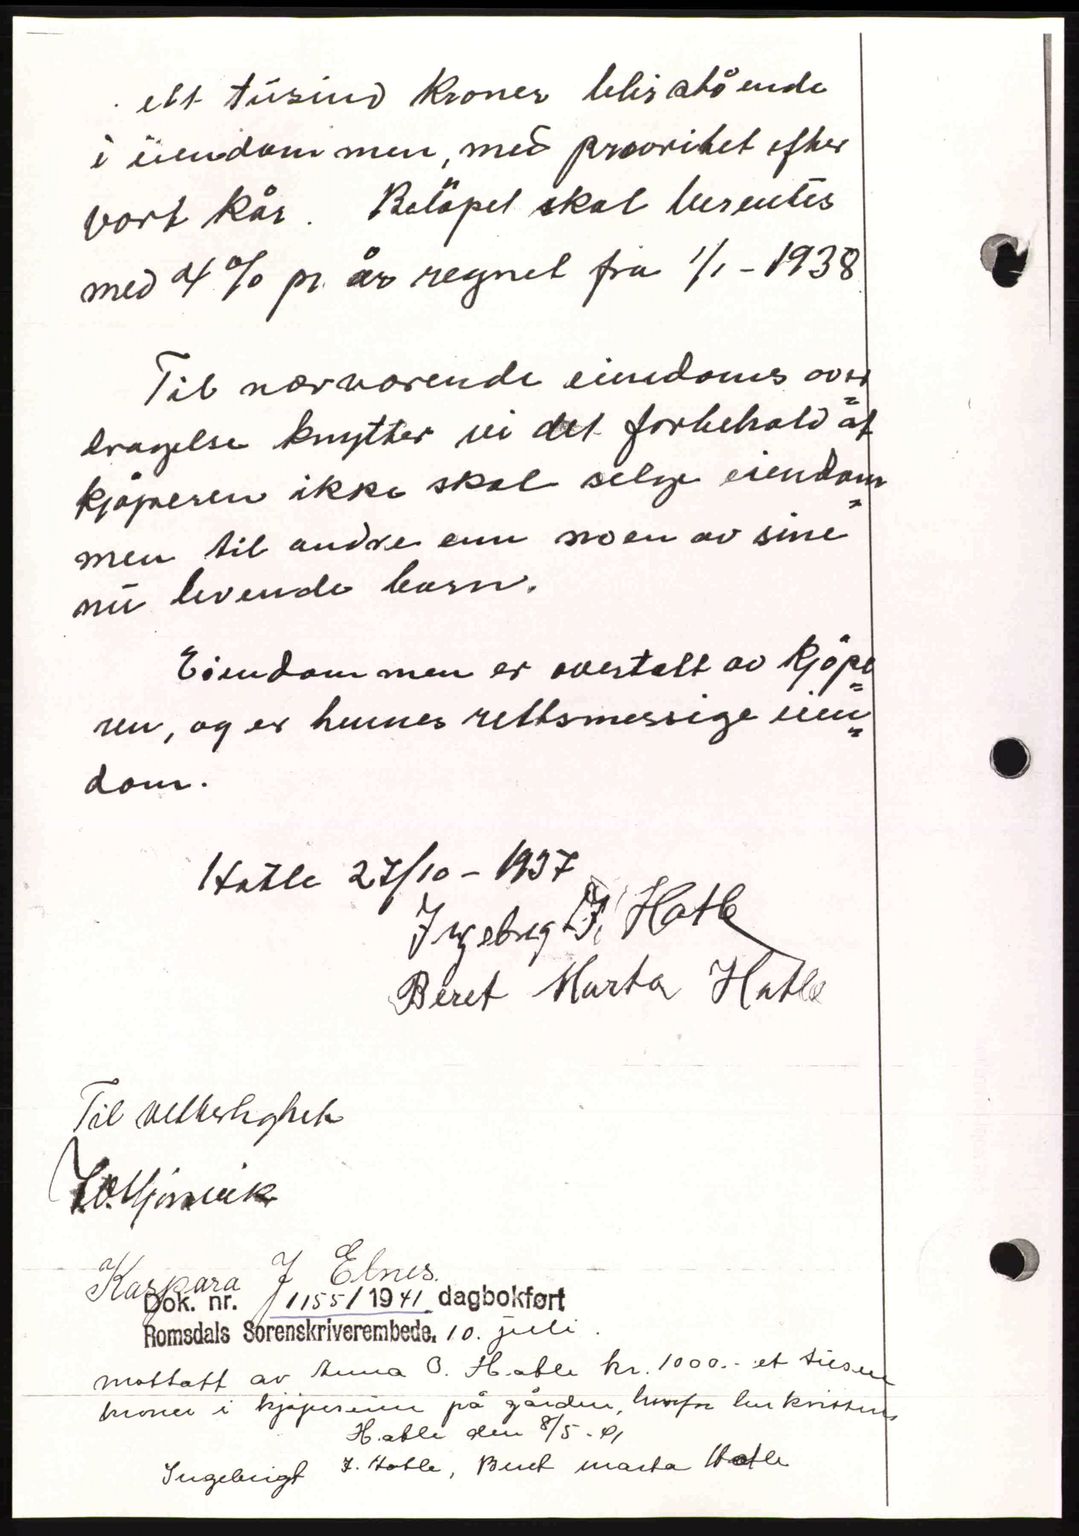 ett tusind kroner blir stående
i eiendommen, med prioritet efter
vort kår. Beløpet skal berentes
med 4 % pr. år regnet fra 1/1 - 1938
Til nærværende eiendoms over=
dragelse knytter vi det forbehold at
kjøperen ikke skal selge eiendom=
men til andre enn noen av sine
nu levende barn.
Eiendommen er overtatt av kjøpe=
ren, og er hennes rettsmessige eien=
dom.
Hatle 27/10 - 1937
Ingebrigt J. Hatle
Beret Marta Hatle
Til vitterlighet
Kaspara J Elnes.
Dok. nr. 1155/1941 dagbokført
Romsdals Sorenskriverembede, 10. juli.
mottatt av Anna O. Hatle kr. 1000.- et tusen
kroner i kjøpesum på gården, hvorfor her kvitteres
Hatle den 8/5-41
Ingebrigt J. Hatle, Beret Marta Hatle